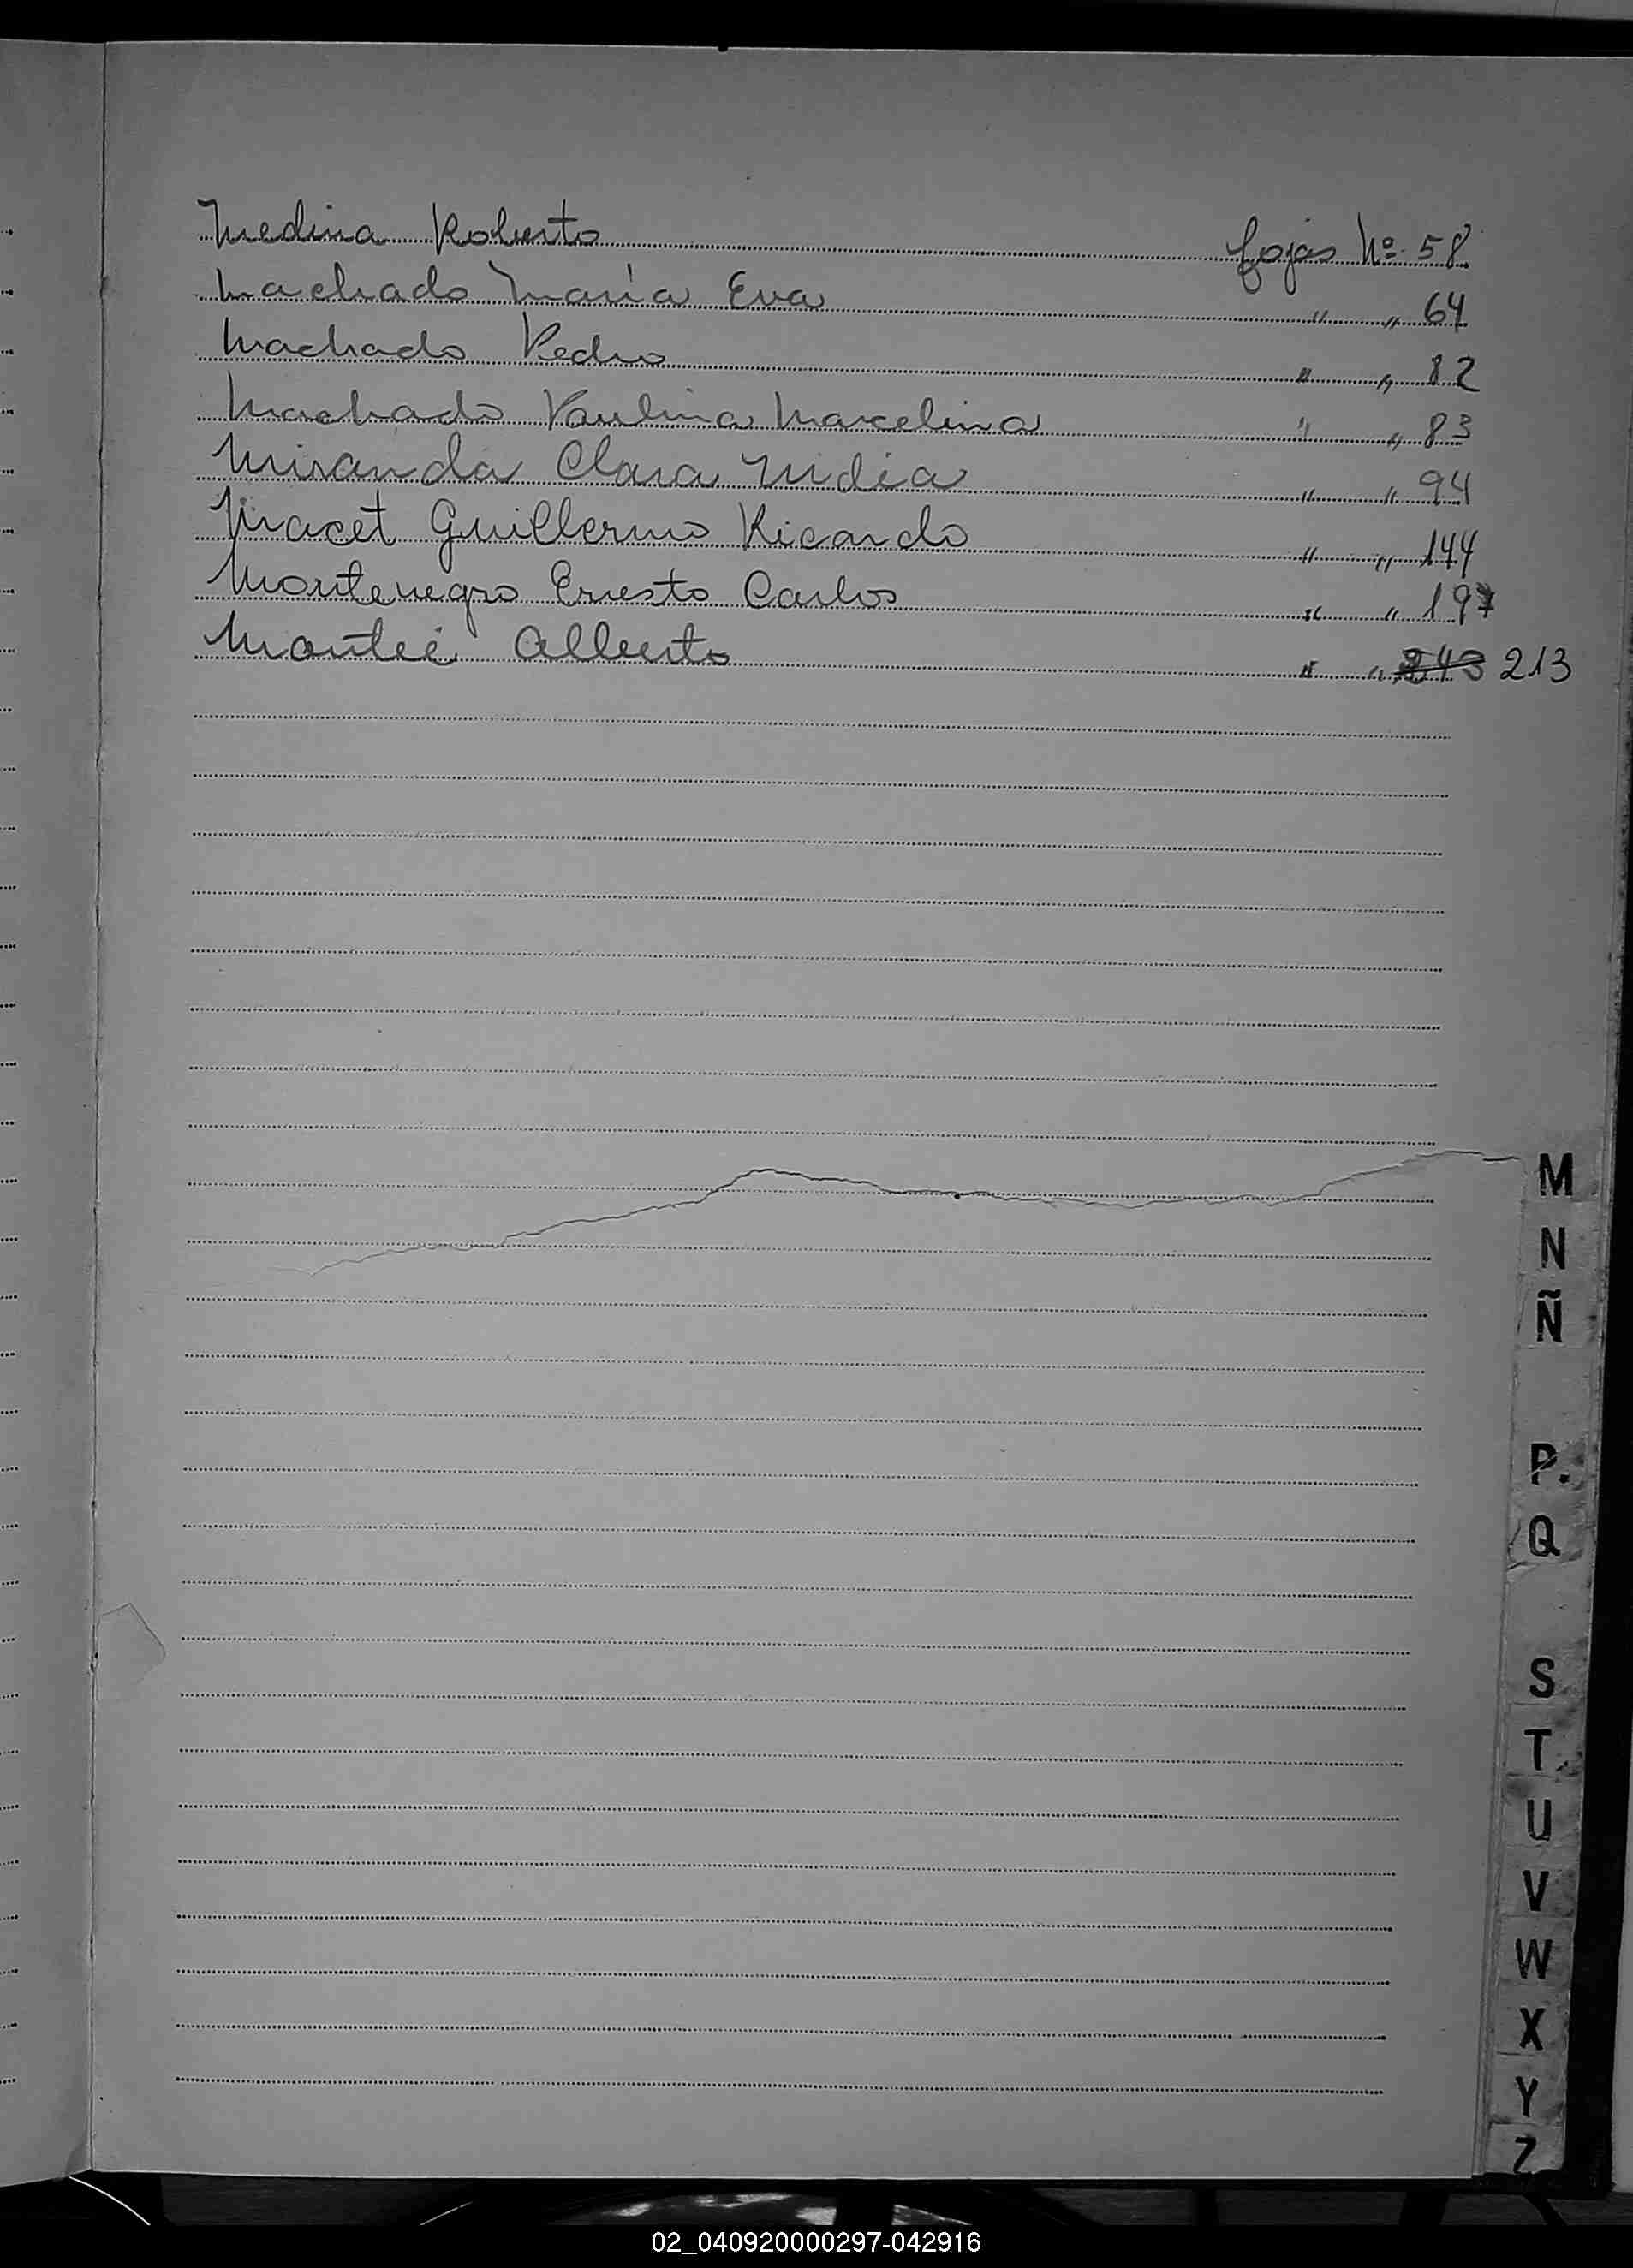 Medina Roberto fojas Nº 58
Machado María Eva " " 64
Machado Pedro " " 82
Machado Paulina Marcelina " " 83
Miranda Clara Nidia " " 94
Macet Guillermo Ricardo " " 144
Montenegro Ernesto Carlos " " 197
Alberto " " 213
M
N
Ñ
P.
Q
S
T
U
V
W
X
Y
Z
02_040920000297-042916